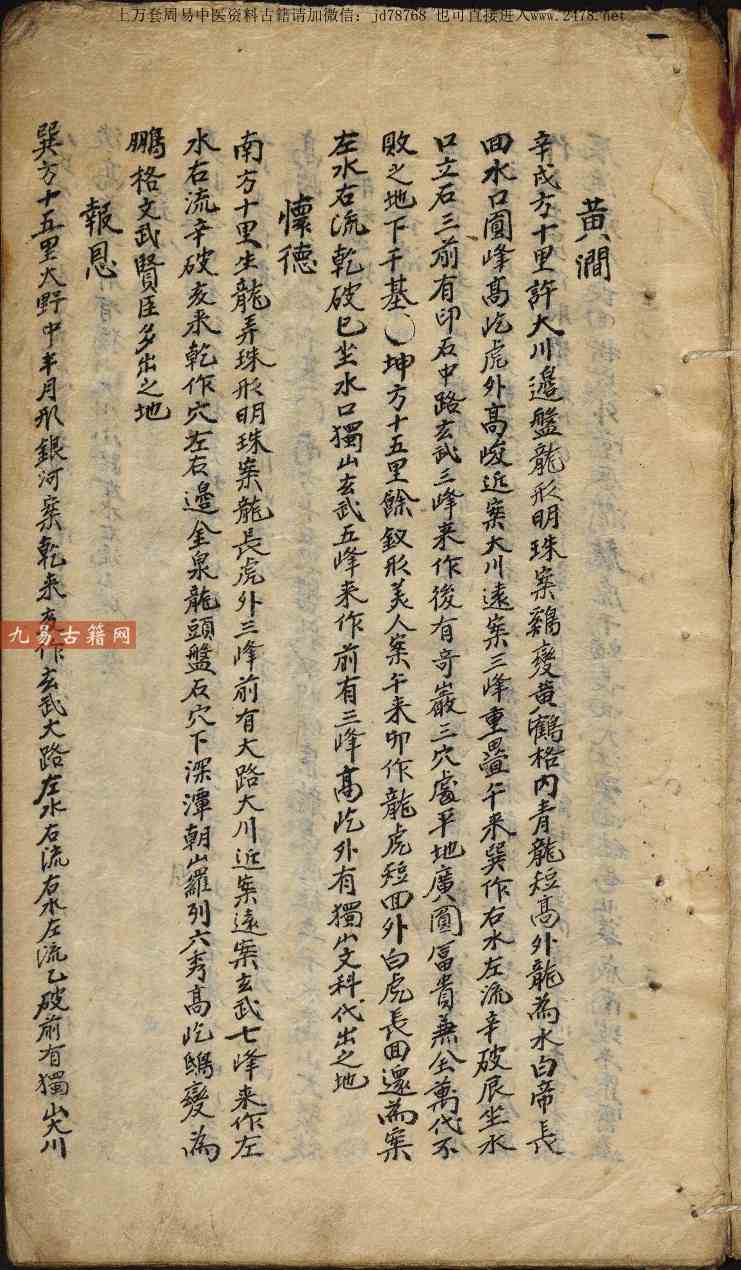 上万套周易中医资料古籍请加微信：jd78768 也可直接进入www.2478.net
黃澗
辛戌方十里許大川邊盤龍形明珠案鷄變黃鶴格內青龍短高外龍為水白帝長
回水口圓峰高屹虎外高峻近案大川遠案三峰重疊午来巽作右水左流辛破辰坐水
口立石三前有印石中路玄武三峰来作後有奇巖三穴處平地廣圓冨貴兼全萬代不
敗之地下千基〇坤方十五里餘釵形美人案午来卯作龍虎短回外白虎長回還為案
左水右流乾破巳坐水口獨山玄武五峰来作前有三峰高屹外有獨山文科代出之地
懷德
南方十里生龍弄珠形明珠案龍長虎外三峰前有大路大川近案遠案玄武七峰来作左
水右流辛破亥来乾作穴左右邊金泉龍頭盤石穴下深潭朝山羅列六秀高屹鵾變為
鵬格文武賢臣多出之地
報恩
巽方十五里大野中半月形銀河案乾来亥作玄武大路左水右流右水左流乙破前有獨山大川
九易古籍网